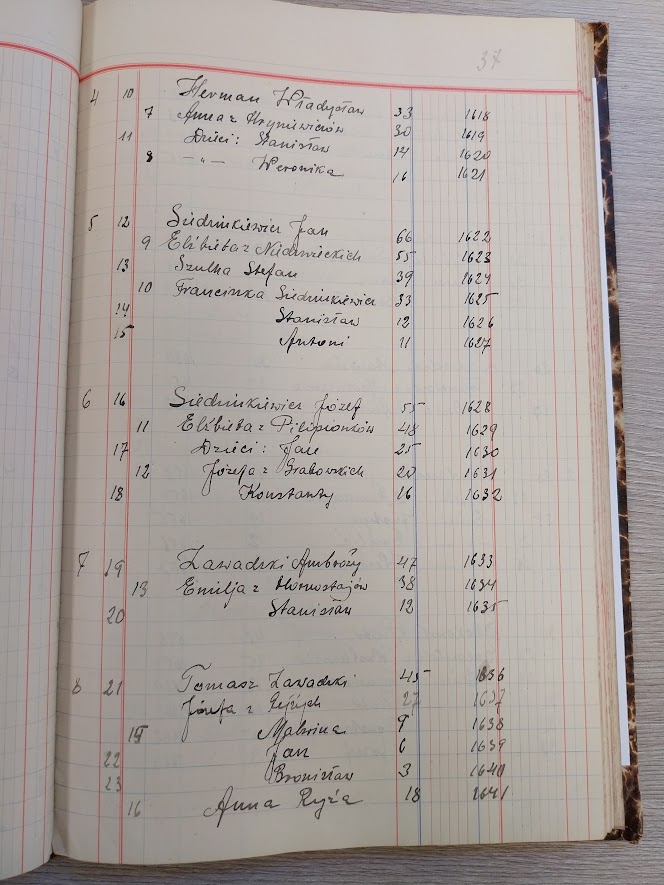 37
4 10 Herman Władysław 33 1618
7 Anna z Hryniewiczów 30 1619
11 Dzieci: Stanisław 14 1620
8 — „ — Weronika 16 1621
5 12 Siedzinkiewicz Jan 66 1622
9 Elżbieta z Niedzwieckich 55 1623
13 Szulha Stefan 39 1624
10 Franciszka Siedzinkiewicz 33 1625
14 Stanisław 12 1626
15 Antoni 11 1627
6 16 Siedzinkiewicz Józef 55 1628
11 Elżbieta z Pilipionków 48 1629
17 Dzieci: Jan 25 1630
12 Józefa z Grabowskich 20 1631
18 Konstanty 16 1632
7 19 Zawadzki Ambroży 47 1633
13 Emilja z Hornostajów 38 1634
20 Stanisław 12 1635
8 21 Tomasz Zawadzki 45 1636
Józefa z 27 1637
15 Malwina 9 1638
22 Jan 6 1639
23 Bronisław 3 1640
16 Anna Ryża 18 1641